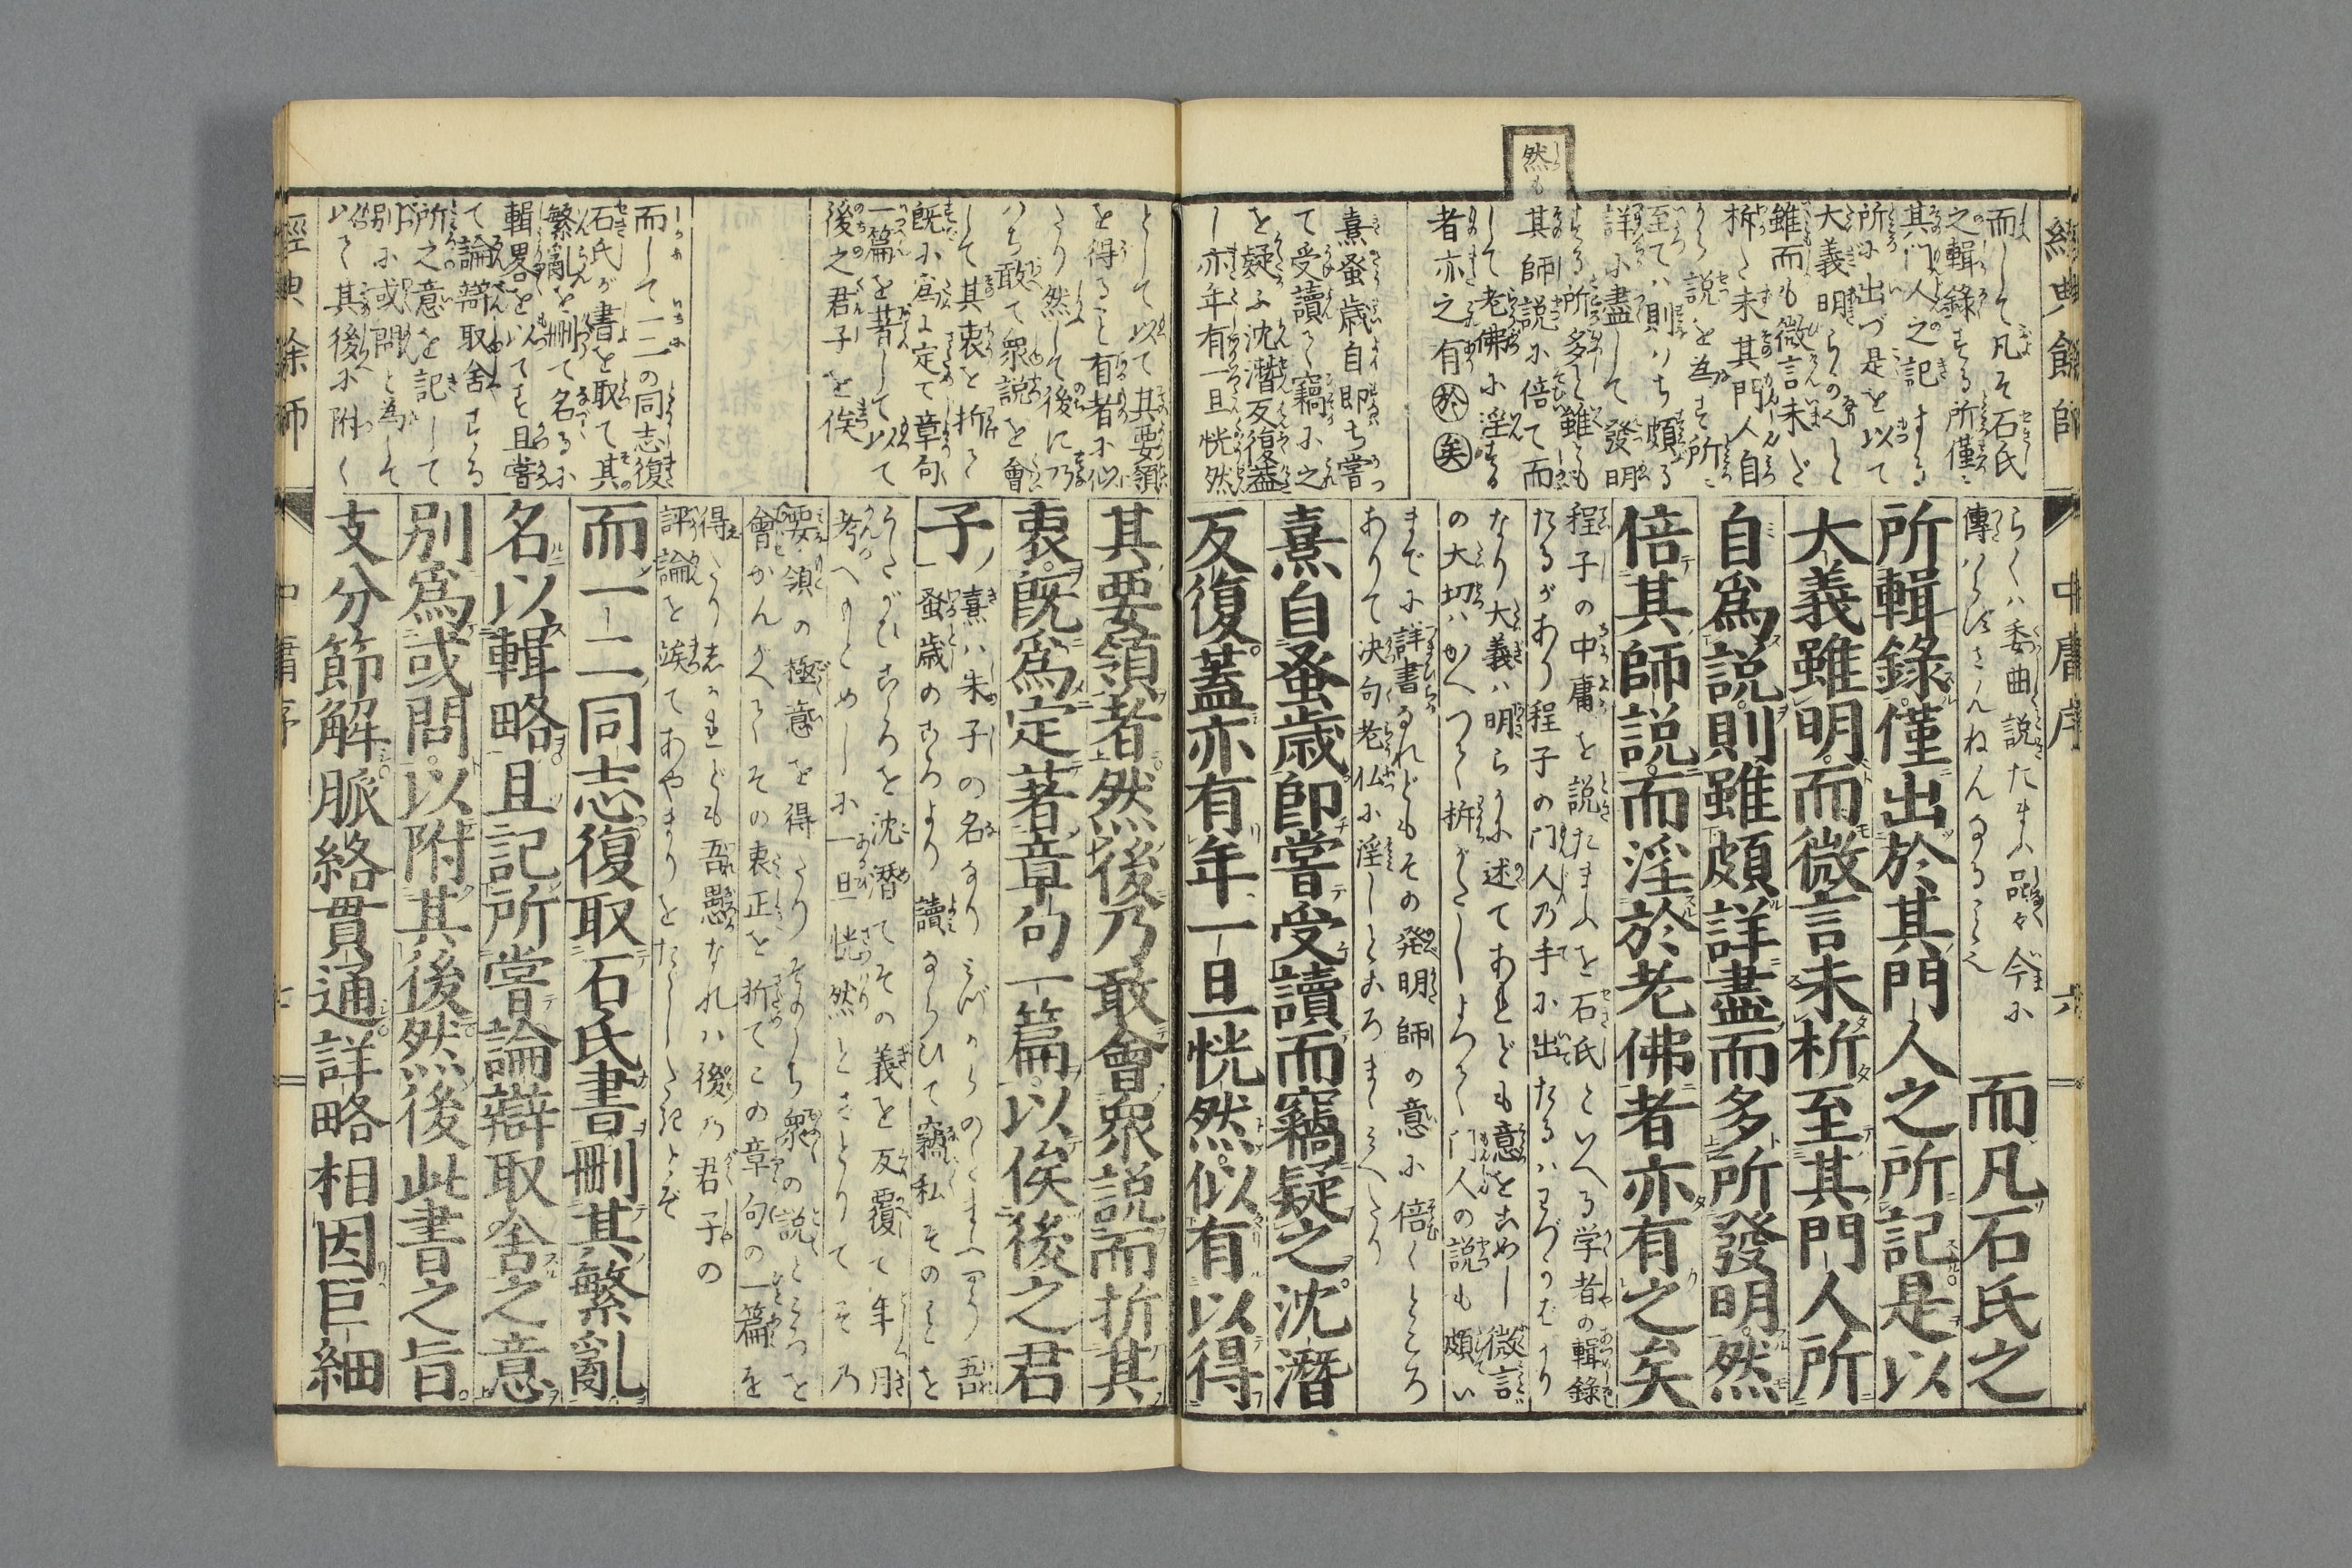 經典餘師
中庸序
六
然
も
而して凡そ石氏
之輯録する所僅に
其門人之記する
所に出づ是を以て
大義明らかなりと
雖而も微言未だ
析た未其門人自
から説を為す所に
至ては則はち頗る
詳に盡して發明
する所多と雖とも
其師説に倍て而
して老佛に淫する
者亦之有於矣
熹蚤歳自即ち嘗
て受讀て竊に之
を疑ふ沈潛反復蓋
し亦年有一旦恍然
而凡石氏之
所輯錄僅出於其門人之所記是以
大義雖明而微言未析至其門人所
自爲説則雖頗詳盡而多所發明然
倍其師説而淫於老佛者亦有之矣
程子の中庸を説たまふを石氏といへる学者の輯錄
たるがあり程子の門人乃手に出たるはわづかばかり
なり大義は明らかに述てあれども意をこめし微言
までに詳書るれどもその発明師の意に倍くところ
ありて決句老仏に淫しところまゝみへたり
熹自蚤歳即嘗受讀而竊疑之沈潛
反復蓋亦有年一旦恍然似有以得
として以て其要領
を得ること有者に似
たり然して後に乃
はち敢て衆説を會
して其衷を折て
既に為に定て章句
一篇を著して以て
後之君子を俟
而して一二の同志復
石氏が書を取て其
繁亂を刪て名るに
輯畧を以てす且嘗
て論辯取舍する
所之意を記して
別に或問と為して
以て其後に附く
其要領者然後乃敢會衆説而折其
衷既爲定著章句一篇以俟後之君
子
熹は朱子の名なり
蚤歳のころより讀ならひて竊私そのことを
うたがひこゝろを沈潛てその義を反覆て年月
考へもとめしに一旦恍然とさとりてその
要領の極意を得たりそのゝち衆の説とこゝろを
會かんがへてその衷正を折てこの章句の一篇を
得たり志かれども吾愚なれは後の君子の
評論を竢てあやまりをたゞしたまへとぞ
而一二同志復取石氏書刪其繁亂
名以輯略且記所嘗論辯取舍之意
別爲或問以附其後然後此書之旨
支分節解脈絡貫通詳略相因巨細
經典餘師
中庸序
七